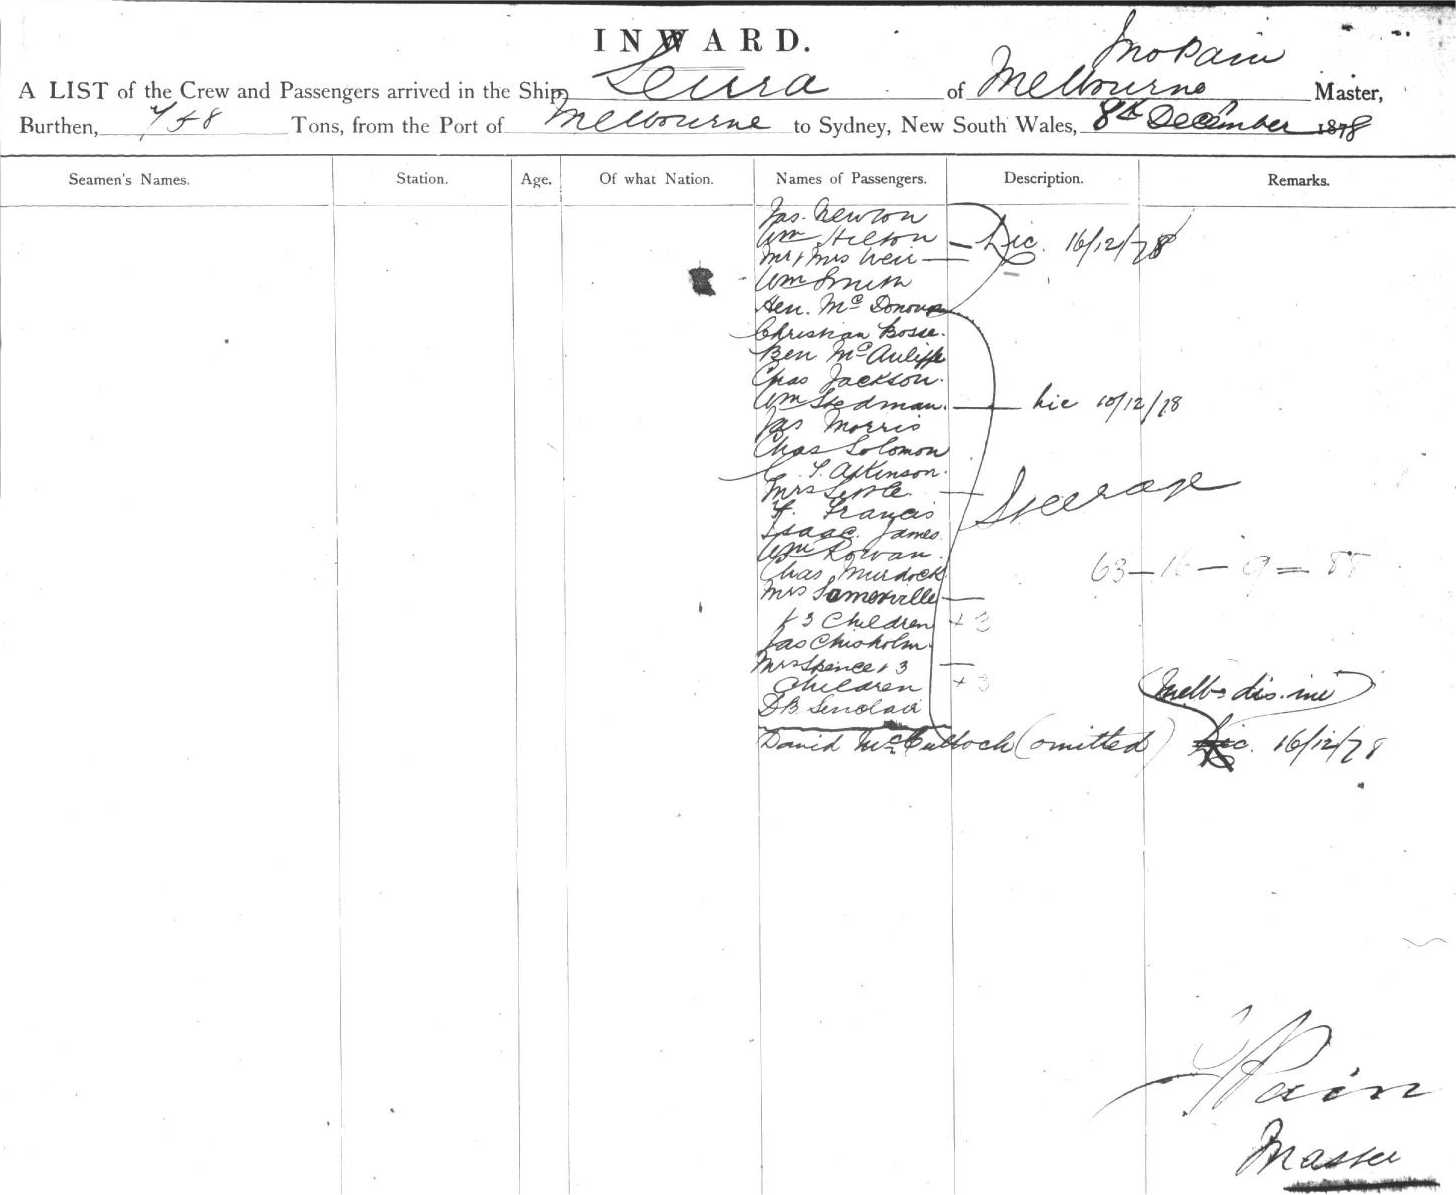 INWARD.
Jno Pain
A LIST of the Crew and Passengers arrived in the Ship Leura of Melbourne Master,
Burthen, 758 Tons, from the Port of Melbourne to Sydney, New South Wales, 8th December 1878
Seamen's Names. Station. Age. Of what Nation. Names of Passengers. Description. Remarks.
Jas. Newton
Wm Hilton — Lic. 16/12/78
Mr & Mrs Weir —
Wm Smith
Hen. McDonovan
Christian Bosse.
Ben McAuliffe
Chas Jackson.
Wm Stedman. — Lic 10/12/78
Jas Morris
Chas Solomon
C. T. Atkinson.
Mrs —
F. Francis Steerage
Isaac James
Wm Rowan.
Chas Murdock 63 — 16 — 9 = 88
Mrs Somerville —
& 3 Children + 3
Jas Chisholm.
Mrs Spence & 3 —
Children + 3
D B Sinclair
David McCulloch (omitted) Lic. 16/12/78
Pain
Master